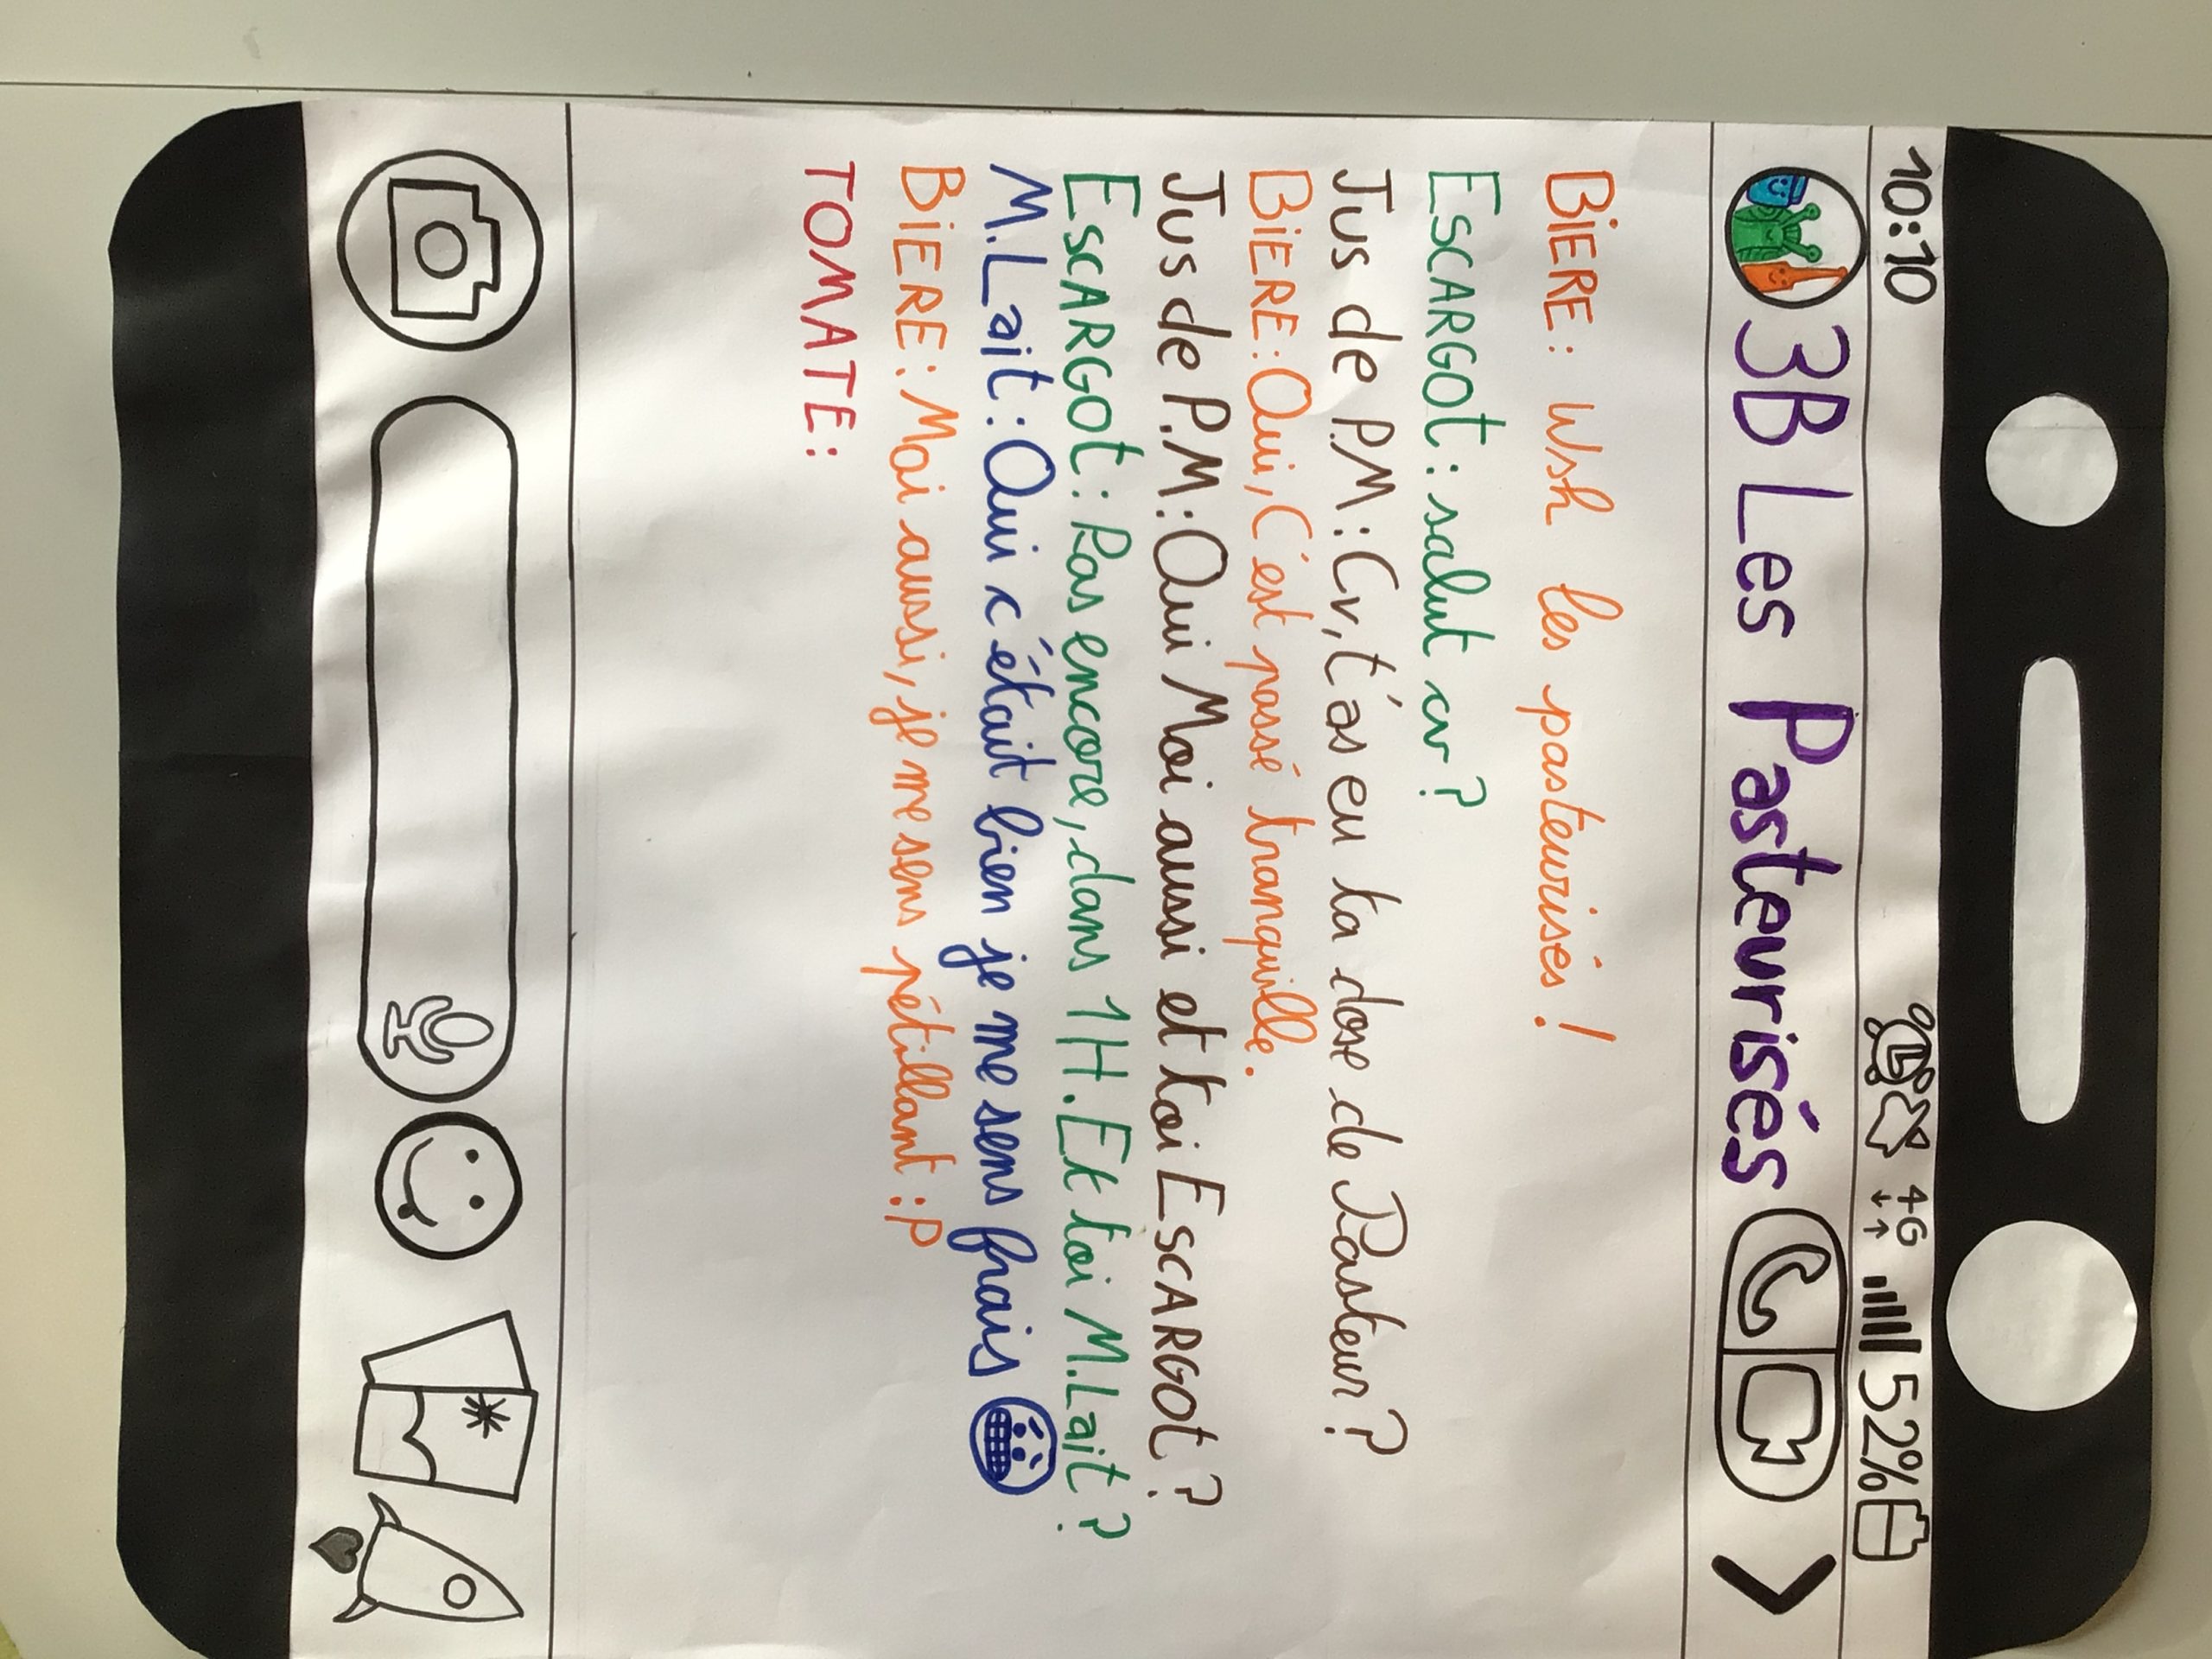 10:10 4G 52%
3B Les Pasteurisés
BiERE: Wsh les pasteurisés!
EscARGOt: salut cv?
Jus de P.M: Cv, t'as eu ta dose de Pasteur?
BiERE: Oui, C'est passé tranquille.
Jus de P.M: Oui Moi aussi et toi EscARGOt?
EscARGOt: Pas encore, dans 1H. Et toi M.Lait?
M.Lait: Oui c'était bien je me sens frais
BiERE: Moi aussi, je me sens pétillant :P
TOMATE: